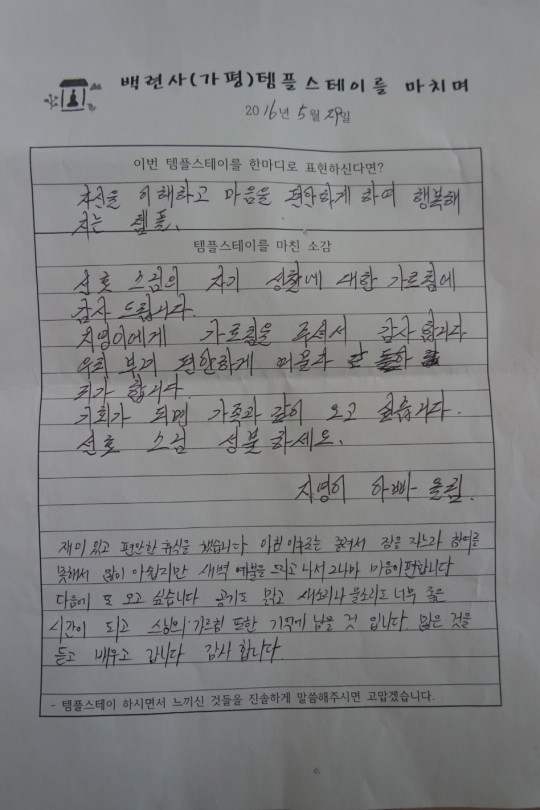 백련사(가평)템플스테이를 마치며
2016년 5월 29일
이번 템플스테이를 한마디로 표현하신다면?
자신을 이해하고 마음을 편안하게 하여 행복해
지는 템플.
템플스테이를 마친 소감
선호 스님의 자기 성찰에 대한 가르침에
감사 드립니다.
지영이에게 가르침을 주셔서 감사합니다
우리 부녀 편안하게 머물다
가 합니다.
기회가 되면 가족과 같이 오고 싶습니다.
선호 스님 성불하세요.
지영이 아빠 올림.
재미있고 편안한 휴식을 했습니다 아침 이후로는 졸려서 잠을 자느라 참여를
못해서 많이 아쉽지만 새벽 예불을 드리고 나서 그나마 마음이 편합니다
다음에 또 오고 싶습니다 공기도 맑고 새소리나 물소리도 너무 좋은
시간이 되고 스님의 가르침 또한 기억에 남을 것 입니다. 많은 것을
듣고 배우고 갑니다 감사합니다.
- 템플스테이 하시면서 느끼신 것들을 진솔하게 말씀해주시면 고맙겠습니다.